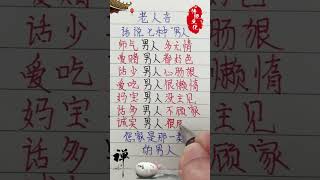 老人言
话说七种男人
帅气 男人 多无情
爱赌 男人 看彩色
话少 男人 心肠狠
爱吃 男人 很懒惰
妈宝 男人 没主见
话多 男人 不顾家
诚实 男人 很
您家是那一类
的男人
禅